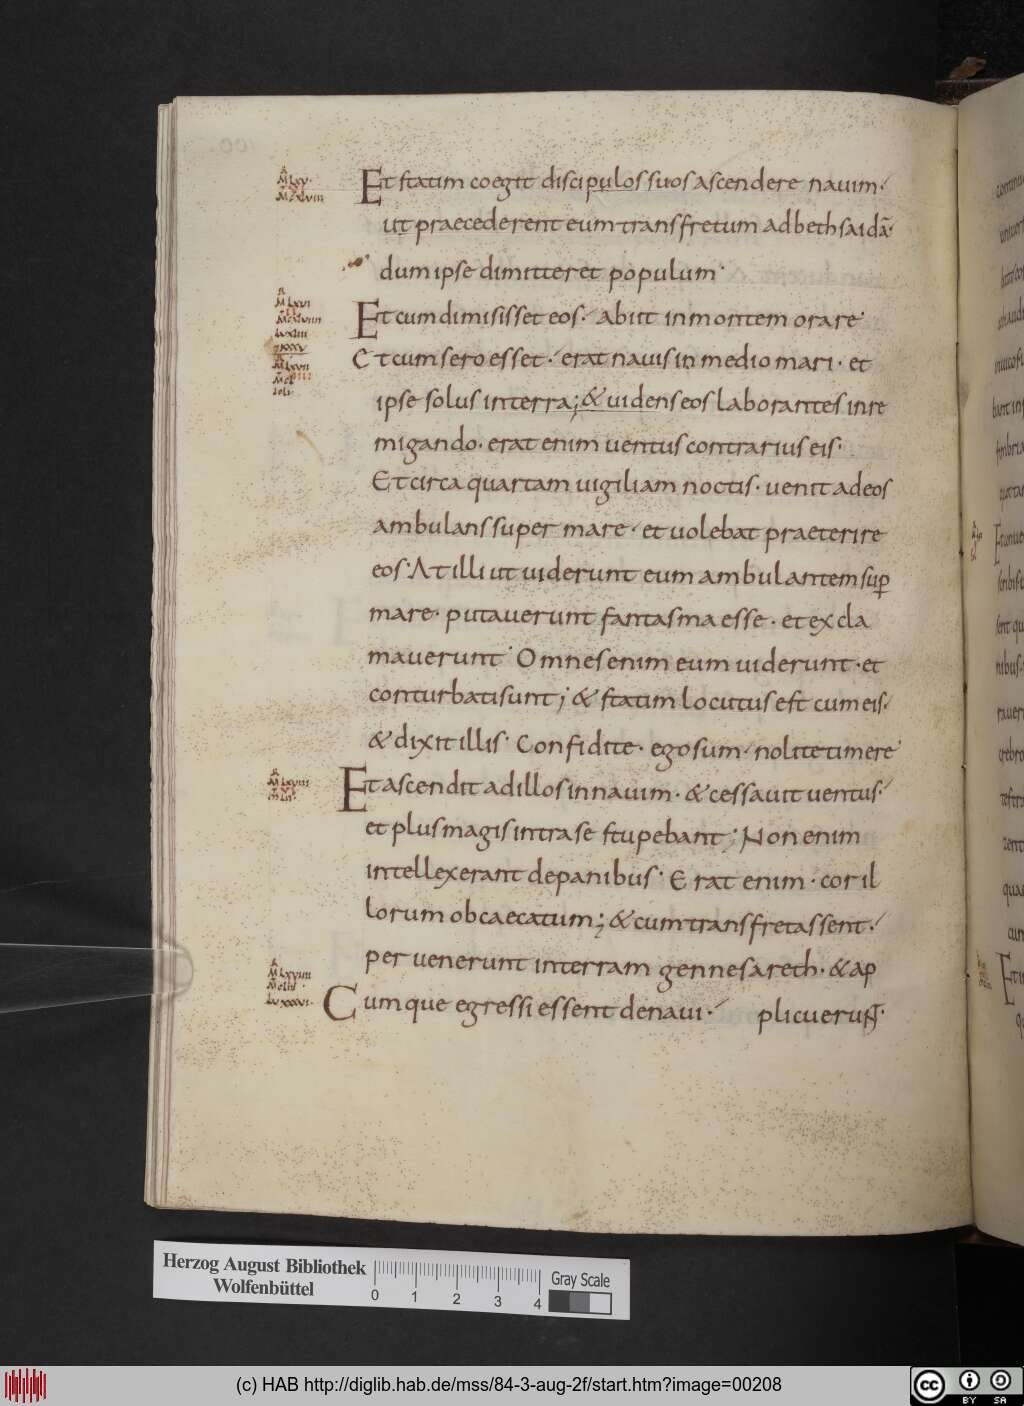 Et statim coegit discipulos suos ascendere navim·
ut praecederent eum trans fretum ad bethsaidā·
dum ipse dimitteret populum·
Et cum dimisisset eos· abiit in montem orare·
Et cum sero esset· erat navis in medio mari· et
ipse solus in terra; & uidens eos laborantes in re
migando· erat enim uentus contrarius eis·
Et circa quartam uigiliam noctis· uenit ad eos
ambulans super mare· et uolebat praeterire
eos· At illi ut uiderunt eum ambulantem sup
mare· putauerunt fantasma esse· et excla
mauerunt· Omnes enim eum uiderunt· et
conturbati sunt; & statim locutus est cum eis·
& dixit illis· Confidite· ego sum· nolite timere·
Et ascendit ad illos in nauim· & cessauit uentus·
et plus magis intra se stupebant; Non enim
intellexerant de panibus· Erat enim· cor il
lorum obcaecatum; & cum transfretassent·
per uenerunt in terram gennesareth· & ap
Cumque egressi essent de naui· plicuerunt·
Herzog August Bibliothek
Wolfenbüttel
0 1 2 3 4
Gray Scale
(c) HAB http://diglib.hab.de/mss/84-3-aug-2f/start.htm?image=00208
cc BY SA